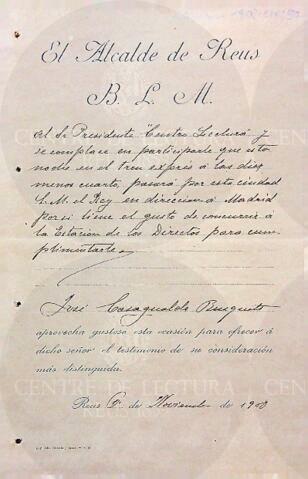 El Alcalde de Reus
B. L. M.
Al Sr Presidente "Centro Lectura" y
se complace en participarle que esta
noche en el tren exprés á las diez
menos cuarto, pasará por esta ciudad
S. M. el Rey en direccion á Madrid
por si tiene el gusto de concurrir á
la Estación de los Directos para cum-
plimentarle.
José Casagualda Busquets
aprovecha gustoso esta ocasión para ofrecer á
dicho señor el testimonio de su consideración
más distinguida.
CENTRE DE LECTURA
Reus de Noviembre de 1908